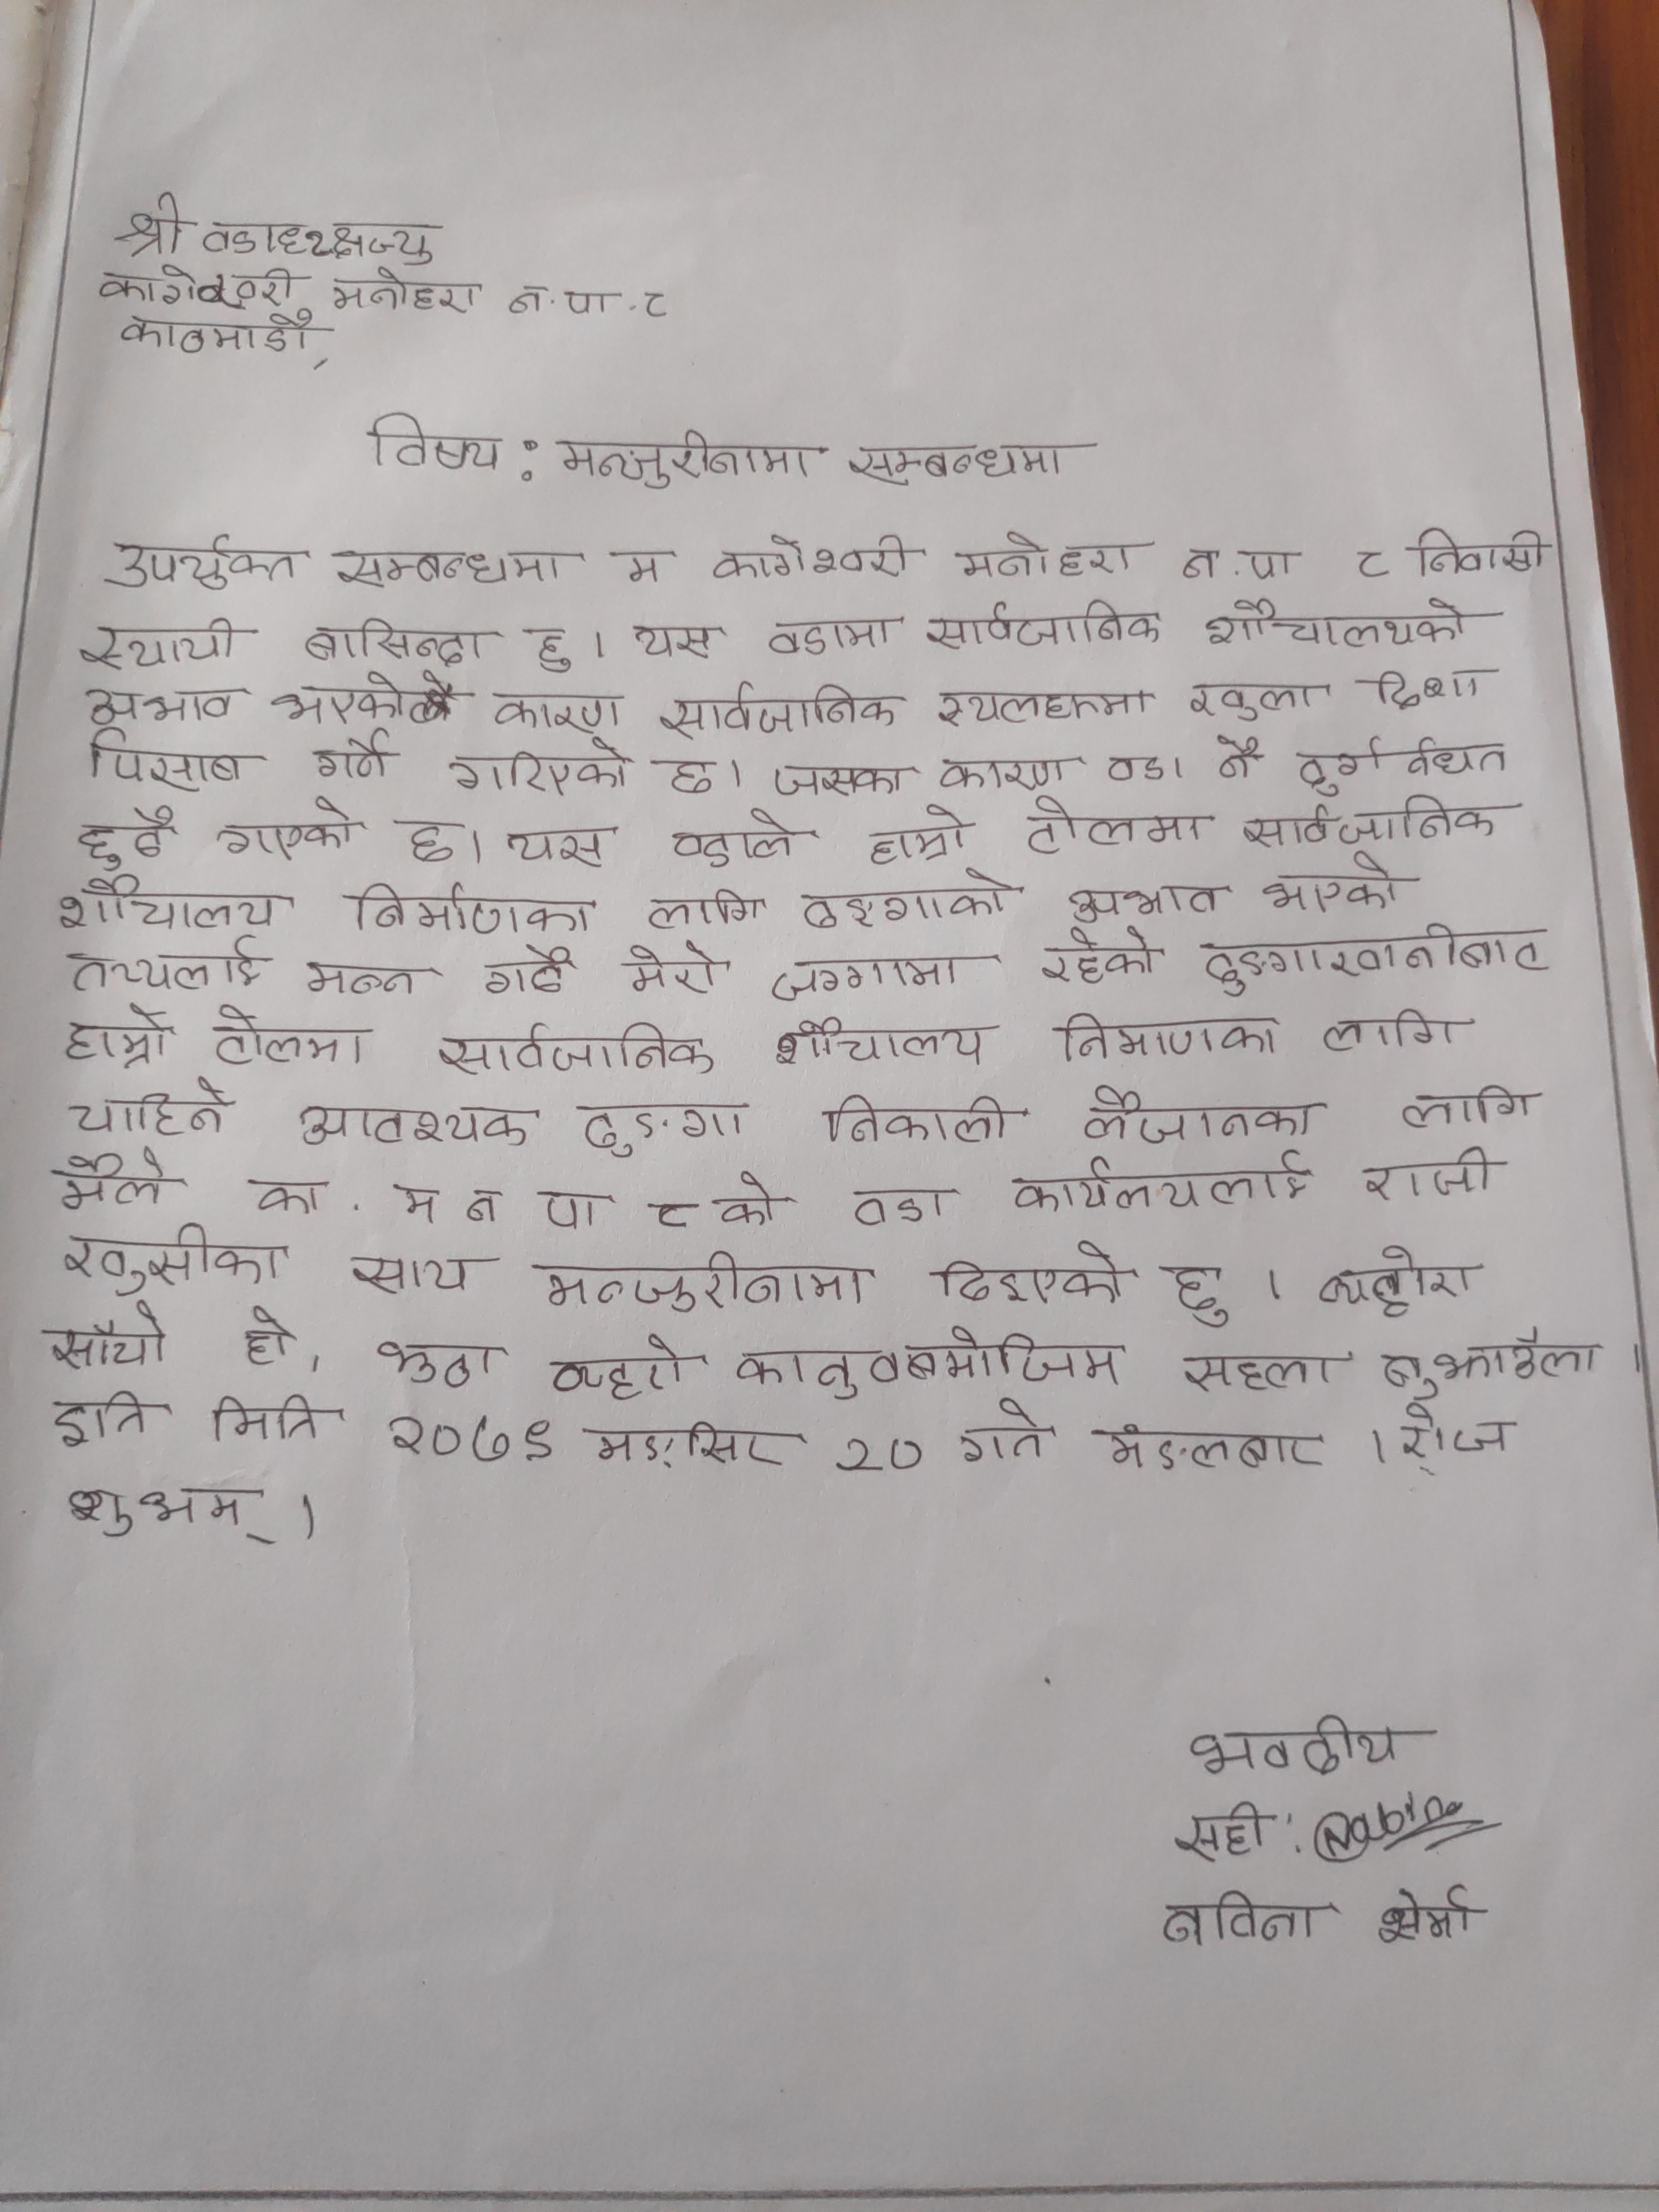 श्री वडाध्यक्षज्यु
कागेश्वरी मनोहरा न.पा.८
काठमाडौं,
विषय : मन्जुरीनामा सम्बन्धमा
उपर्युक्त सम्बन्धमा म कागेश्वरी मनोहरा न.पा ८ निवासी
स्थायी बासिन्दा हु । यस वडामा सार्वजानिक शौचालयको
अभाव भएकोले कारण सार्वजानिक स्थलहरुमा खुला दिशा
पिसाब गर्ने गरिएको छ । जसका कारण वडा नै दुर्गन्धित
हुदै गएको छ । यस वडाले हाम्रो टोलमा सार्वजानिक
शौचालय निर्माणका लागि ढुङ्गाको अभाव भएको
तथ्यलाई मनन गर्दै मेरो जग्गामा रहेको ढुङ्गाखानीबाट
हाम्रो टोलमा सार्वजानिक शौचालय निमाणका लागि
चाहिने आवश्यक ढुङ्गा निकाली लैजानका लागि
मैले का. म न पा ८ को वडा कार्यलयलाई राजी
खुसीका साथ मन्जुरीनामा दिइएको छु । व्यहोरा
साँचो हो, झुठा व्यहरो कानुनबमोजिम सहुला बुझाउँला ।
इति मिति २०७९ मङ्सिर २० गते मंङलबार । रोज
शुभम् ।
भवदीय
सही : Nabina
नविना शर्मा